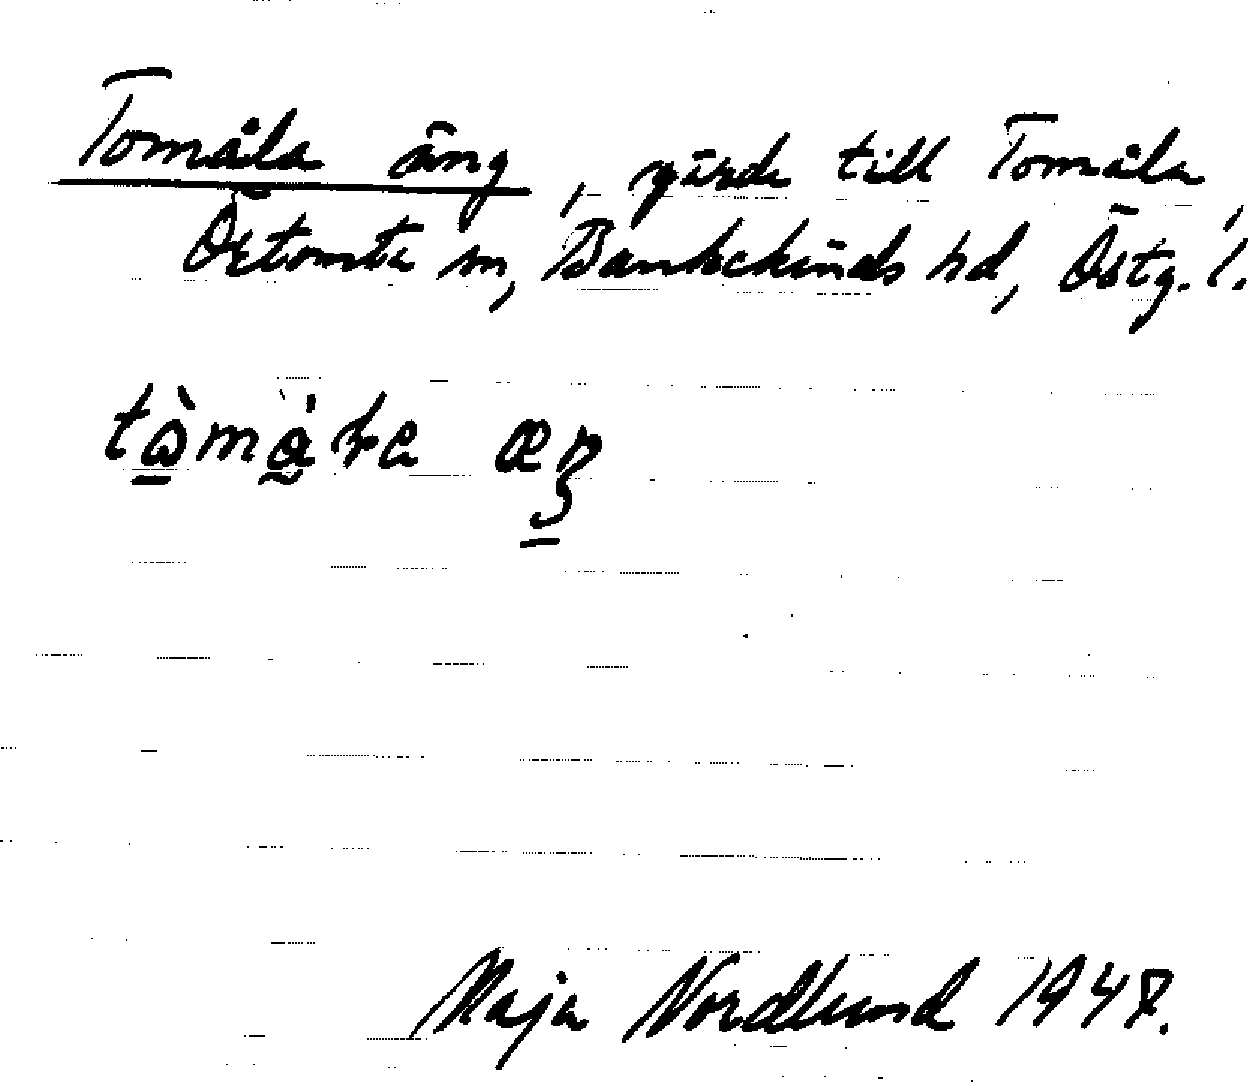 Tomåla äng, gärde till Tomåla,
Örtomta sn, Bankekinds hd, Östg. l.
Maja Nordlund 1947.